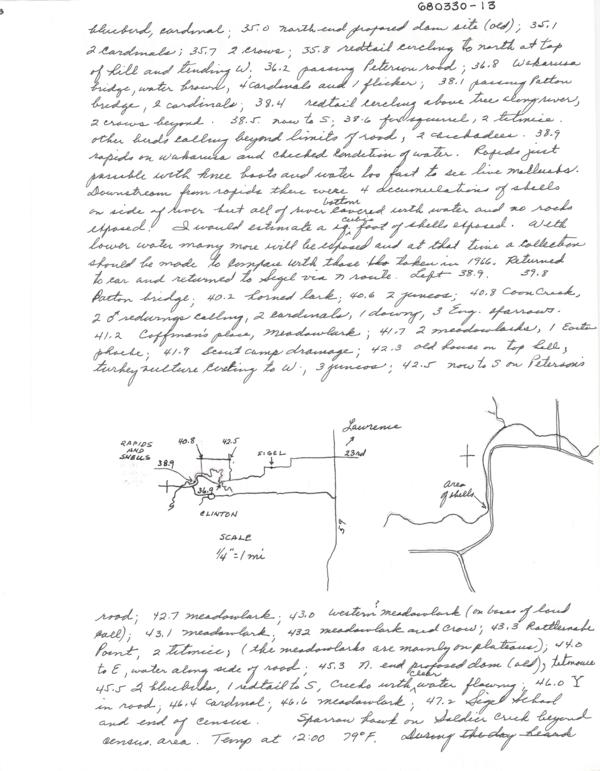 680330-13
bluebird, cardinal; 35.0 north end proposed dam site (old); 35.1
2 cardinals; 35.7 2 crows; 35.8 redtail circling to north at top
of hill and tending W. 36.2 passing Peterson road; 36.8 Wakarusa
bridge, water brown, 4 cardinals and 1 flicker; 38.1 passing Patton
bridge, 2 cardinals; 38.4 redtail circling above tree along river,
2 crows beyond. 38.5 now to S; 38.6 fox squirrel, 2 titmice.
other birds calling beyond limits of road, 2 chickadees. 38.9
rapids on Wakarusa and checked condition of water. Rapids just
passible with knee boots and water too fast to see live mollusks.
Downstream from rapids there were 4 accumulations of shells
on side of river but all of river bottom covered with water and no rocks
exposed. I would estimate a cubic foot of shells exposed. With
lower water many more will be exposed and at that time a collection
should be made to compare with those taken in 1966. Returned
to car and returned to Sigel via N route. Left 38.9. 39.8
Patton bridge; 40.2 horned lark; 40.6 2 juncos; 40.8 Coon Creek,
2 ♂ redwings calling, 2 cardinals, 1 downy, 3 Eng. sparrows.
41.2 Coffman's place, meadowlark; 41.7 2 meadowlarks, 1 Eastern
phoebe; 41.9 Scout camp drainage; 42.3 old house on top hill,
turkey vulture circling to W., 3 juncos; 42.5 now to S on Peterson's
Lawrence
RAPIDS
AND
SHELLS
40.8
42.5
SIGEL
23rd
38.9
36.9
CLINTON
59
SCALE
1/4" = 1 mi
area
of shells
road; 42.7 meadowlark; 43.0 western? meadowlark (on bases of loud
call); 43.1 meadowlark; 43.2 meadowlark and crow; 43.3 Rattlesnake
Point, 2 titmice, (the meadowlarks are mainly on plateaus); 44.0
to E, water along side of road; 45.3 N. end proposed dam (old), titmouse
45.5 2 bluebirds, 1 redtail to S, Creeks with clear water flowing; 46.0 Y
in road; 46.4 cardinal; 46.6 meadowlark; 47.2 Sigel School
and end of census. Sparrow hawk on Soldier Creek beyond
census area. Temp at 12:00 79°F. During the day heard